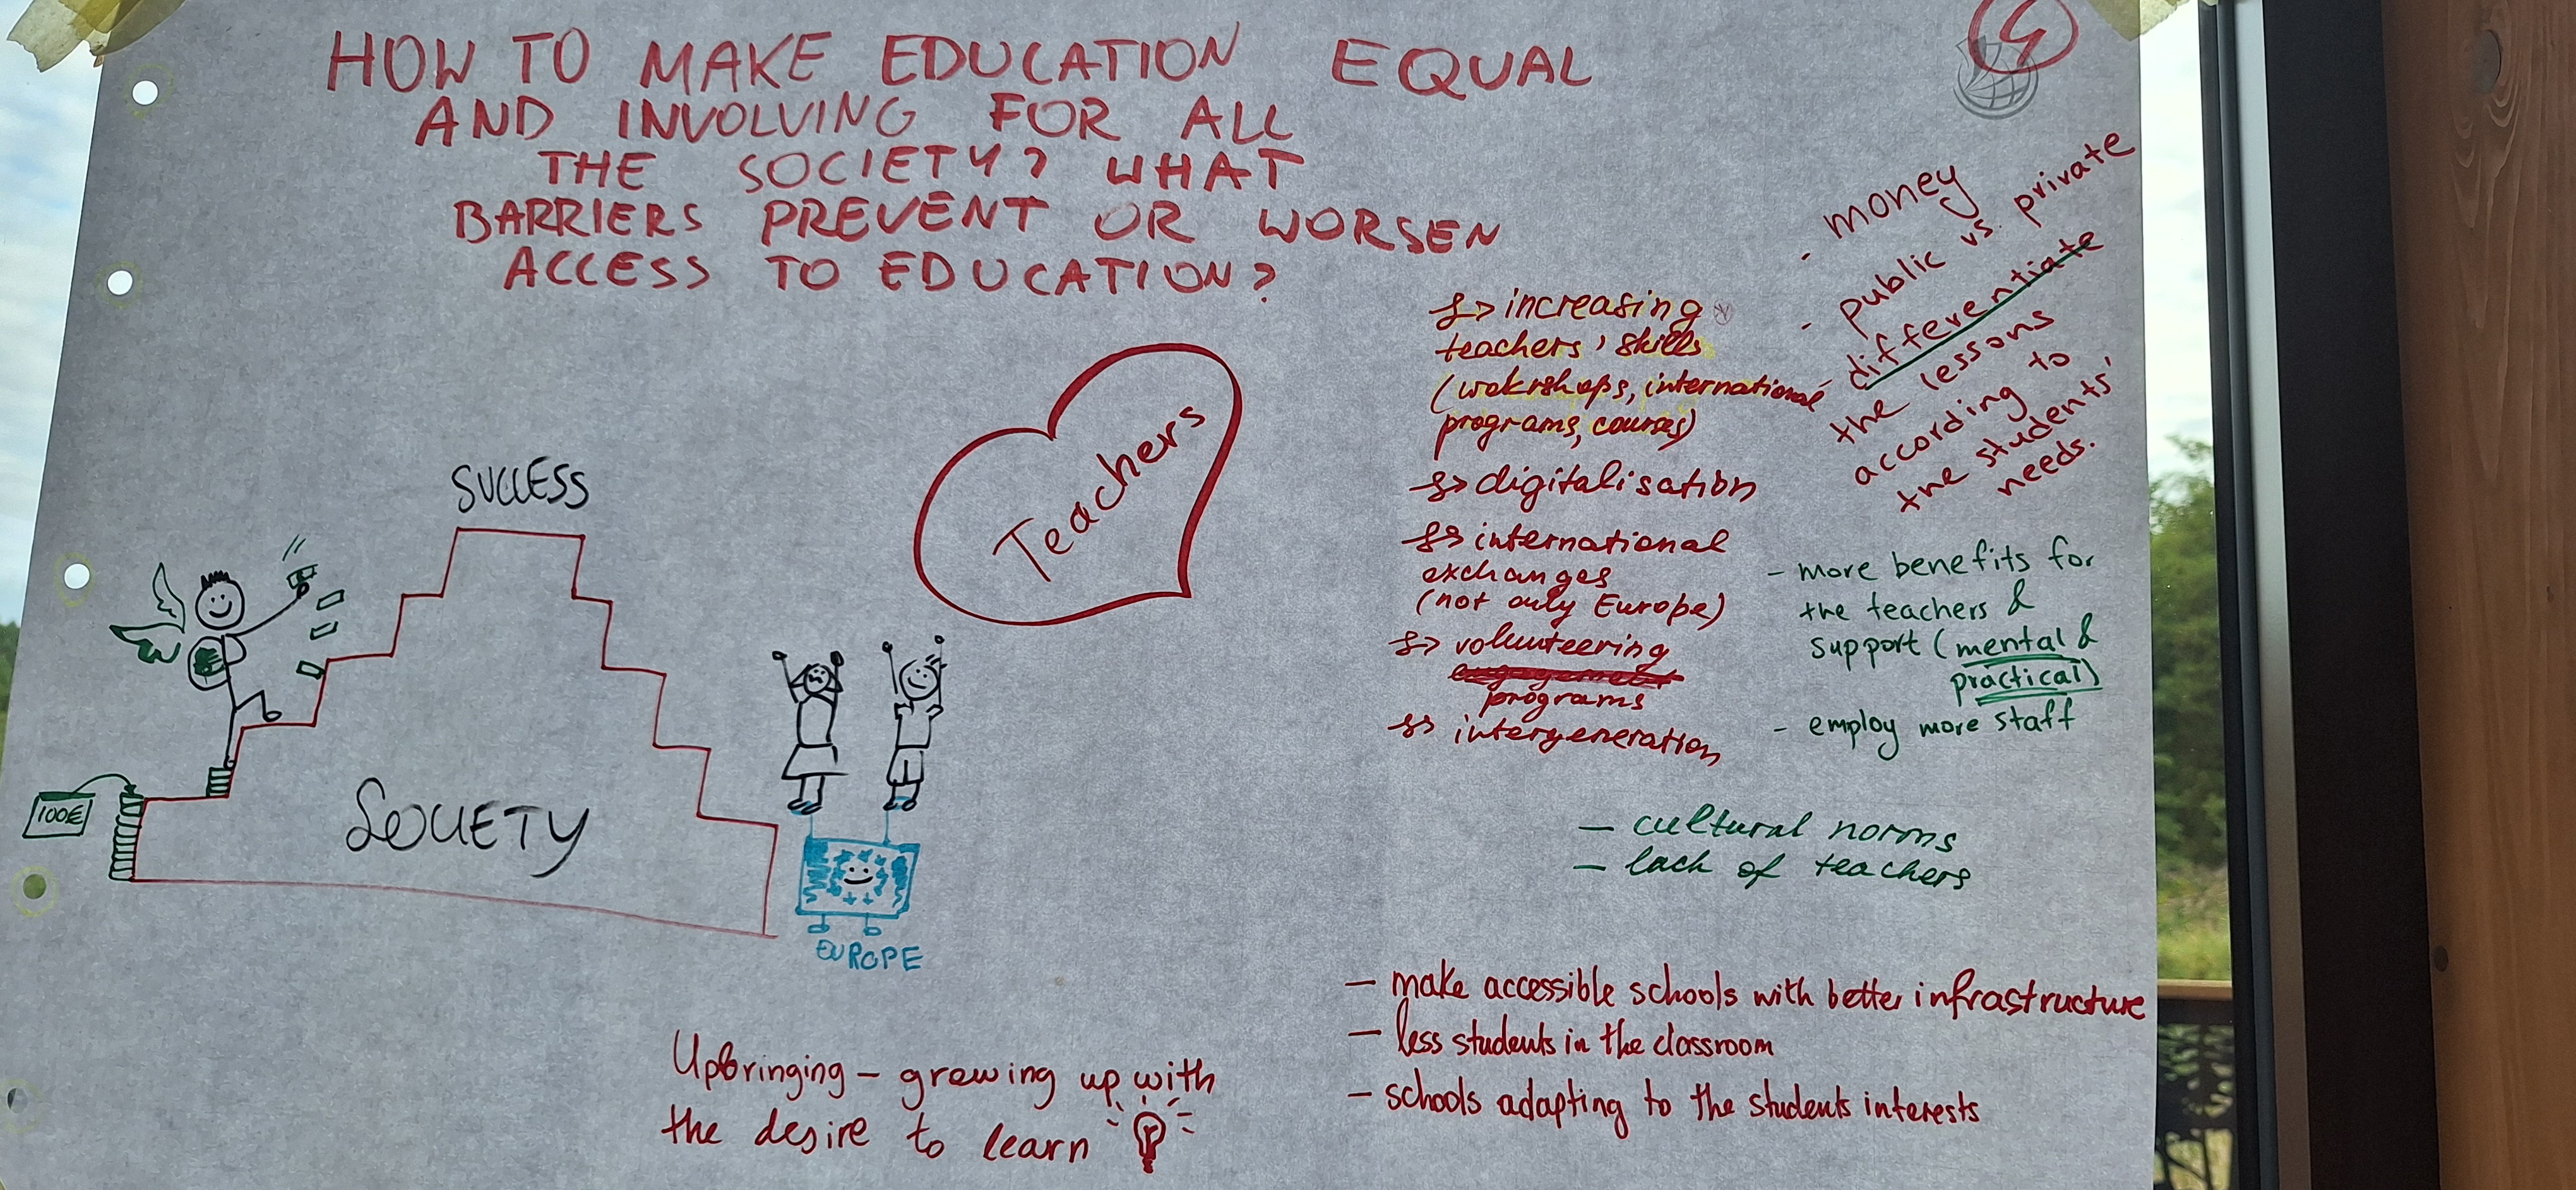 HOW TO MAKE EDUCATION EQUAL
AND INVOLVING FOR ALL
THE SOCIETY? WHAT
BARRIERS PREVENT OR WORSEN
ACCESS TO EDUCATION?
4
- money
- public vs. private
- differentiate
the lessons
according to
the students'
needs.
increasing
teachers' skills
(wokrshops, international
programs, courses)
digitalisation
international
exchanges
(not only Europe)
volunteering
programs
intergeneration
- more benefits for
the teachers &
support (mental &
practical)
- employ more staff
- cultural norms
- lack of teachers
Teachers
SUCCESS
SOCIETY
100€
EUROPE
- make accessible schools with better infrastructure
- less students in the classroom
- schools adapting to the students interests
Upbringing - growing up with
the desire to learn